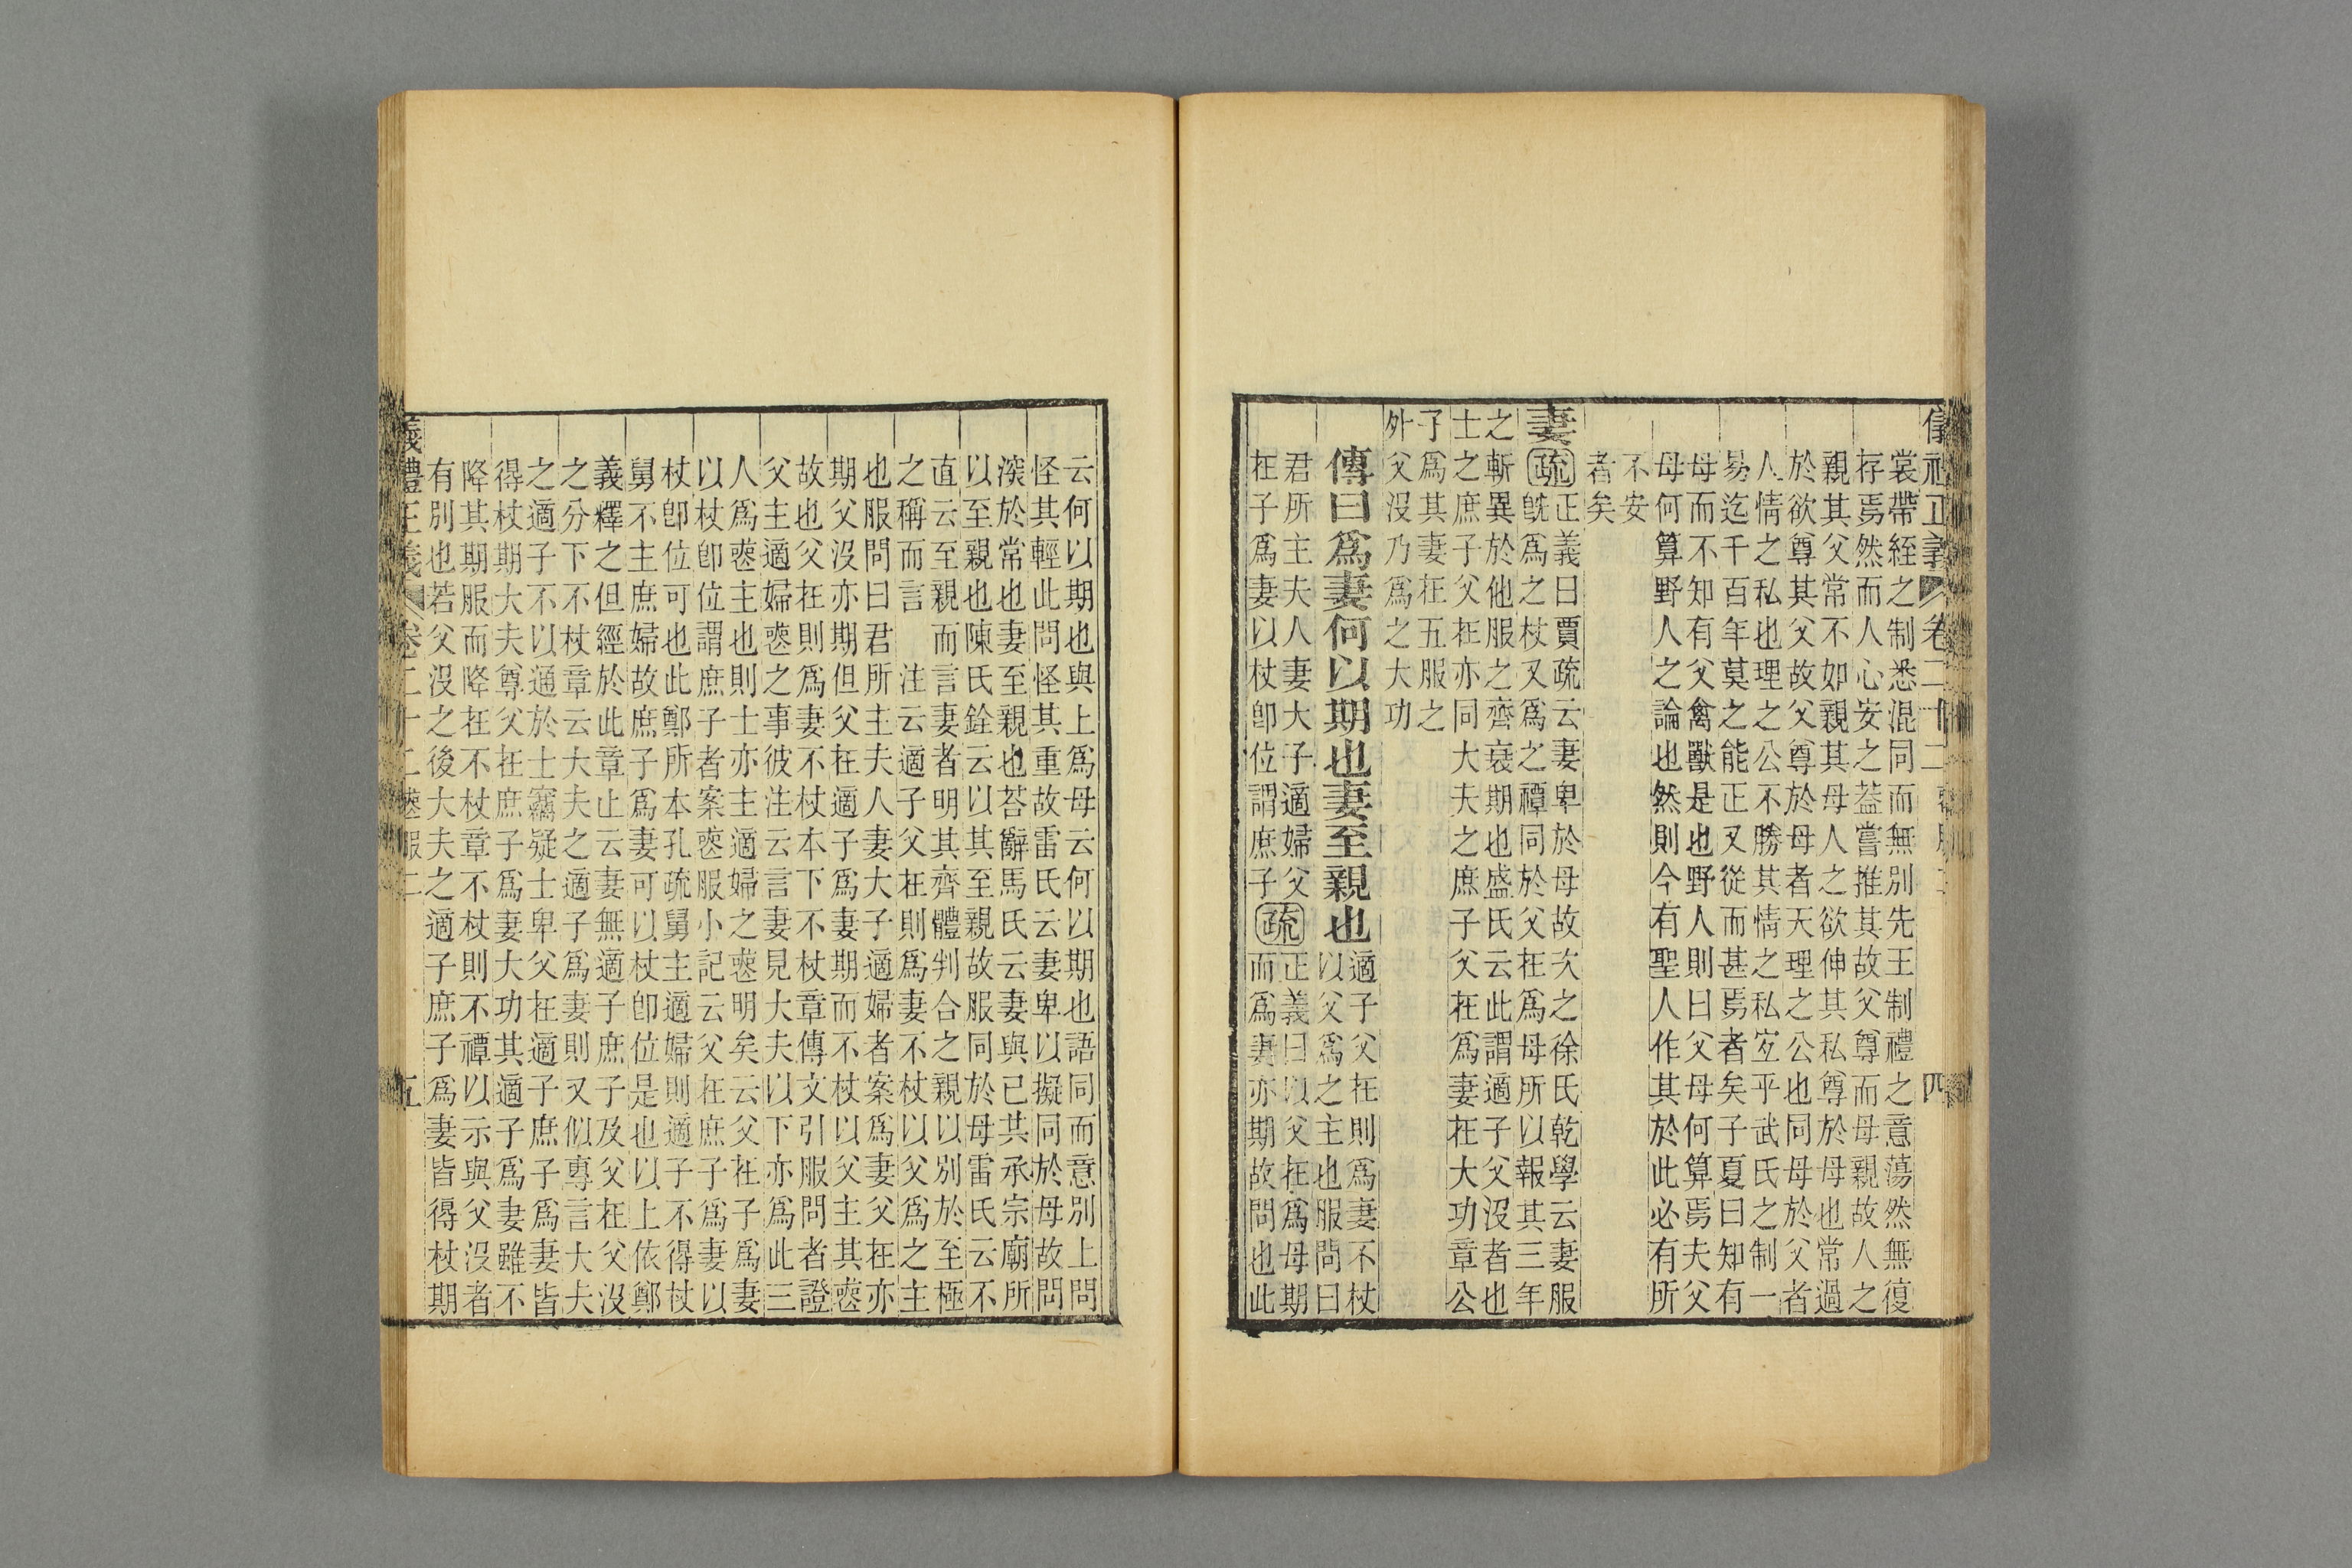 裳帶絰之制悉混同而無別先王制禮之意蕩然無復
存焉然而人心安之葢嘗推其故父尊而母親故人之
親其父常不如親其母人之欲伸其私尊於母也常過
於欲尊其父故父尊於母者天理之公也同母於父者
人情之私也理之公不勝其情之私宐乎武氏之制一
易迄千百年莫之能正又從而甚焉者矣子夏曰知有
母而不知有父禽獸是也野人則曰父母何算焉夫父
母何算野人之論也然則今有聖人作其於此必有所
不安
者矣
妻
疏
正義曰賈疏云妻卑於母故次之徐氏乾學云妻服
旣爲之杖又爲之禫同於父在爲母所以報其三年
之斬異於他服之齊衰期也盛氏云此謂適子父沒者也
士之庶子父在亦同大夫之庶子父在爲妻在大功章公
子爲其妻在五服之
外父沒乃爲之大功
傳曰爲妻何以期也妻至親也
適子父在則爲妻不杖
以父爲之主也服問曰
君所主夫人妻大子適婦父
在子爲妻以杖卽位謂庶子
疏
正義曰以父在爲母期
而爲妻亦期故問也此
云何以期也與上爲母云何以期也語同而意別上問
怪其輕此問怪其重故雷氏云妻卑以擬同於母故問
深於常也妻至親也荅辭馬氏云妻與已共承宗廟所
以至親也陳氏銓云以其至親故服同於母雷氏云不
直云至親而言妻者明其齊體判合之親以別於至極
之稱而言　注云適子父在則爲妻不杖以父爲之主
也服問曰君所主夫人妻大子適婦者案爲妻父在亦
期父沒亦期但父在適子爲妻期而不杖以父主其喪
故也父在則爲妻不杖本下不杖章傳文引服問者證
父主適婦喪之事彼注云言妻見大夫以下亦爲此三
人爲喪主也則士亦主適婦之喪明矣云父在子爲妻
以杖卽位謂庶子者案喪服小記云父在庶子爲妻以
杖卽位可也此鄭所本孔疏舅主適婦則適子不得杖
舅不主庶婦故庶子爲妻可以杖卽位是也以上依鄭
義釋之但經於此章止云妻無適子庶子及父在父沒
之分下不杖章云大夫之適子爲妻則又似專言大夫
之適子不以通於士竊疑士卑父在適子庶子爲妻皆
得杖期大夫尊父在庶子爲妻大功其適子爲妻雖不
降其期服而降在不杖章不杖則不禫以示與父沒者
有別也若父沒之後大夫之適子庶子爲妻皆得杖期